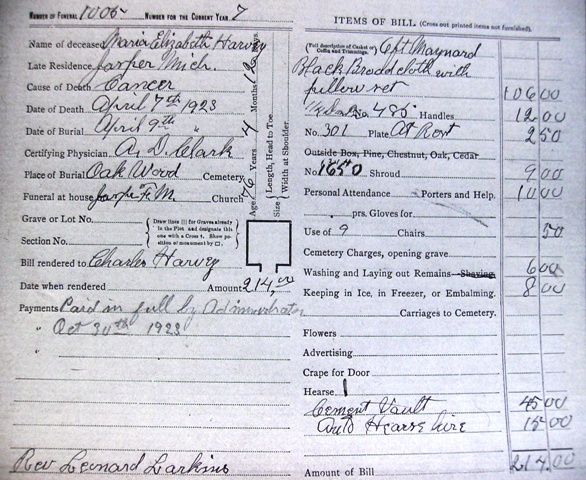 NUMBER OF FUNERAL 1005 NUMBER FOR THE CURRENT YEAR 7
Name of deceased Maria Elizabeth Harvey
Late Residence Jasper Mich.
Cause of Death Cancer
Date of Death April 7th 1923
Date of Burial April 9th "
Certifying Physician A. D. Clark
Place of Burial Oak Wood Cemetery
Funeral at house Jasper F. M. Church
Age 76 Years 4 Months 12 Days
Size Length, Head to Toe
Width at Shoulder
Grave or Lot No.
Section No.
Draw lines for Graves already in the Plot and designate this one with a Cross †. Show position of monument by □.
Bill rendered to Charles Harvey
Date when rendered Amount 214.00
Payments Paid in full by Administrator
" Oct 30th 1923
"
Rev Leonard Larkins
ITEMS OF BILL (Cross out printed items not furnished).
(Full description of Casket or Coffin and Trimmings. 6ft Maynard
Black Broadcloth with
pillow set 106 00
No. 485 Handles 12 00
No. 301 Plate At Rest 2 50
Outside Box, Pine, Chestnut, Oak, Cedar
No. 1650 Shroud 9 00
Personal Attendance Porters and Help. 10 00
prs. Gloves for
Use of 9 Chairs 50
Cemetery Charges, opening grave
Washing and Laying out Remains Shaving 6 00
Keeping in Ice, in Freezer, or Embalming. 8 00
Carriages to Cemetery.
Flowers
Advertising
Crape for Door
Hearse 1
Cement Vault 45 00
Auto Hearse hire 15 00
Amount of Bill 214.00